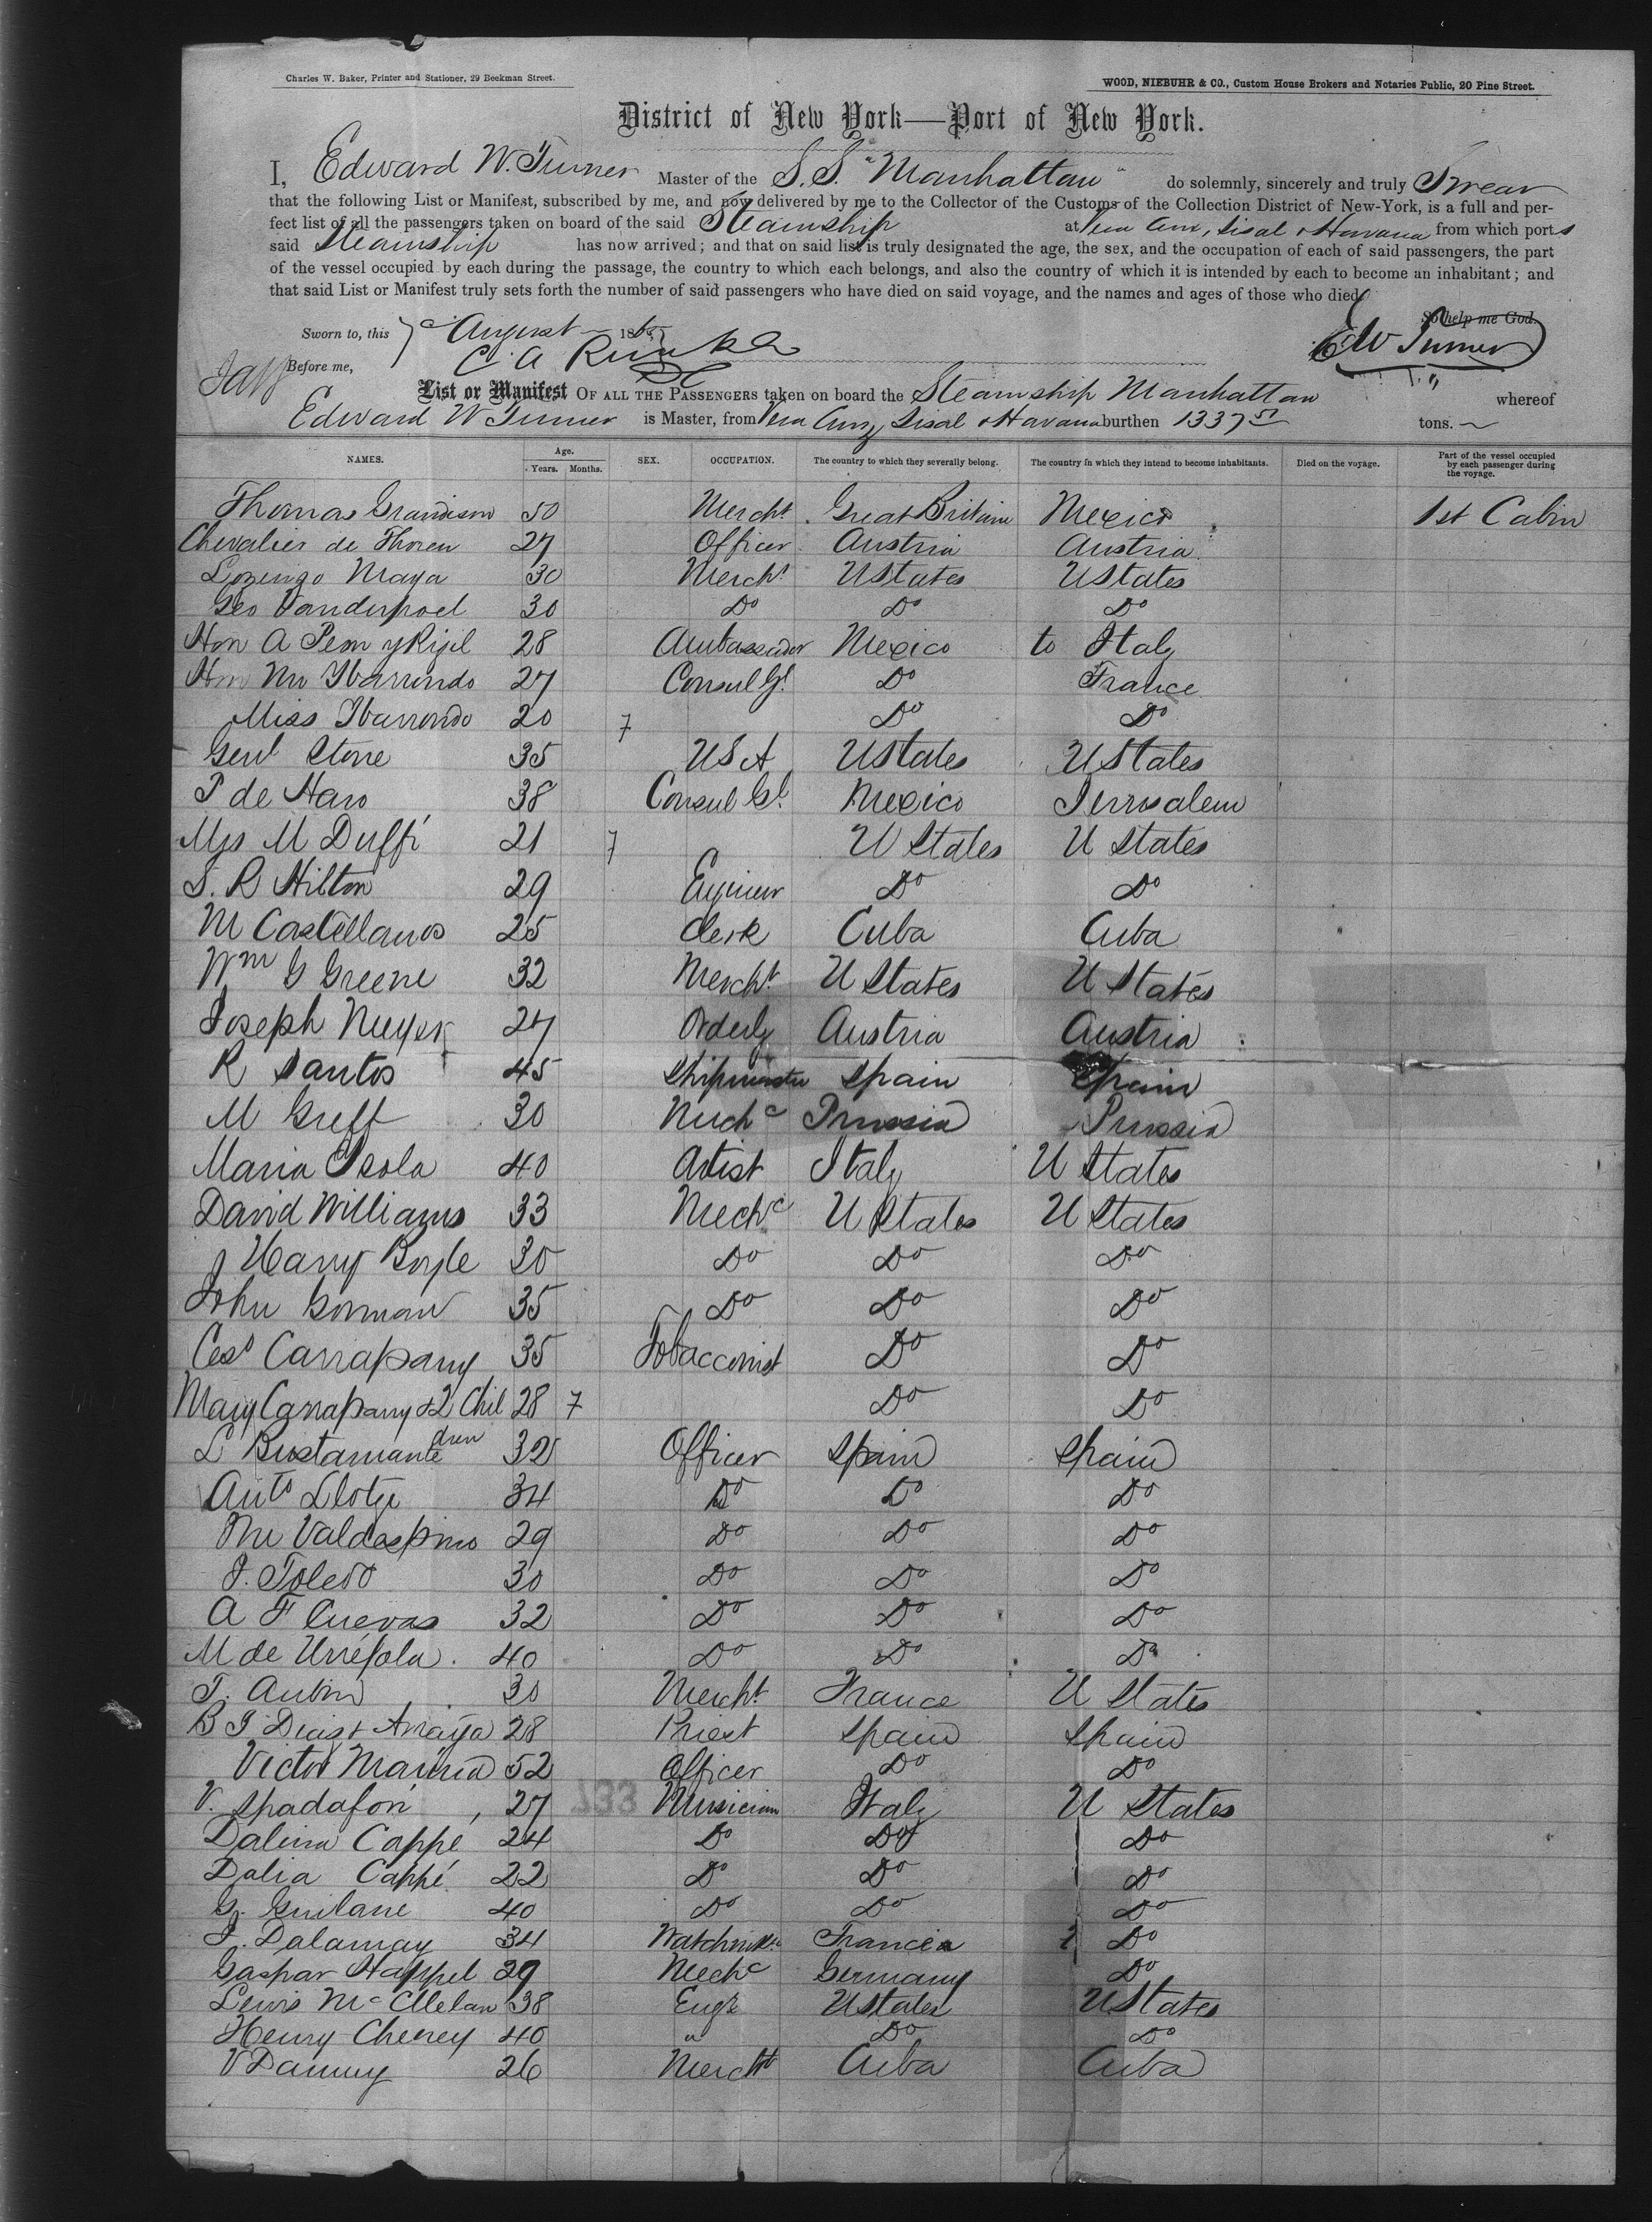 Charles W. Baker, Printer and Stationer, 29 Beekman Street.
WOOD, NIEBUHR & CO., Custom House Brokers and Notaries Public, 20 Pine Street.
District of New York—Port of New York.
I, Edward W. Turner Master of the S.S. "Manhattan" do solemnly, sincerely and truly Swear
that the following List or Manifest, subscribed by me, and now delivered by me to the Collector of the Customs of the Collection District of New-York, is a full and per-
fect list of all the passengers taken on board of the said Steamship at Vera Cruz, Sisal & Havana from which ports
said Steamship has now arrived; and that on said list is truly designated the age, the sex, and the occupation of each of said passengers, the part
of the vessel occupied by each during the passage, the country to which each belongs, and also the country of which it is intended by each to become an inhabitant; and
that said List or Manifest truly sets forth the number of said passengers who have died on said voyage, and the names and ages of those who died.
So help me God.
Sworn to, this 7 August 186
EW Turner
Before me, C. A.
List or Manifest OF ALL THE PASSENGERS taken on board the Steamship Manhattan whereof
Edward W Turner is Master, from Vera Cruz Sisal & Havana burthen 1337 tons.
NAMES. Age. Years. Months. SEX. OCCUPATION. The country to which they severally belong. The country in which they intend to become inhabitants. Died on the voyage. Part of the vessel occupied by each passenger during the voyage.
Thomas Grandison 50 Mercht Great Britain Mexico 1st Cabin
Chevalier de Thoren 27 Officer Austria Austria
Lorenzo Maya 30 Mercht UStates UStates
Geo Vanderpoel 30 Do Do Do
Hon A Peon y Rijil 28 Ambassador Mexico to Italy
Hon Mr Ybarrondo 27 Consul Gl. Do France
Miss Ybarrondo 20 f Do Do
Genl Stone 35 USA UStates UStates
P de Haro 38 Consul Gl. Mexico Jerrusalem
Mrs M Duffi 21 f U States U States
S. R Hilton 29 Engineer Do Do
M Castellanos 25 Clerk Cuba Cuba
Wm G Greene 32 Mercht U States U States
Joseph 27 Orderly Austria Austria
R Santos 45 Shipmaster Spain Spain
M Greff 30 Mechc Prussia Prussia
Maria Isola 40 Artist Italy U States
David Williams 33 Mechc U States U States
J Harry Boyle 30 Do Do Do
John Gorman 35 Do Do Do
Cess Carrapany 35 Tobacconist Do Do
Mary Carrapany & 2 Children 28 f Do Do
L Bustamante 32 Officer Spain Spain
Anto 34 Do Do Do
Mr Valdespino 29 Do Do Do
J. Toledo 30 Do Do Do
A F Cuevas 32 Do Do Do
M de Urréjola. 40 Do Do Do
T. Aubin 30 Mercht France U States
B J Dias & Amaya 28 Priest Spain Spain
Victor Marina 52 Officer Do Do
V. Spadafori 27 Musician Italy U States
Dalina Cappé 24 Do Do Do
Dalia Cappé 22 Do Do Do
G. Guilane 40 Do Do Do
J. Dalamay 34 Watchmkr France Do
Gaspar Happel 29 Mechc Germany Do
Lewis McClelan 38 Engr UStates UStates
Henry Cheney 40 " Do Do
V Danuy 26 Mercht Cuba Cuba
733